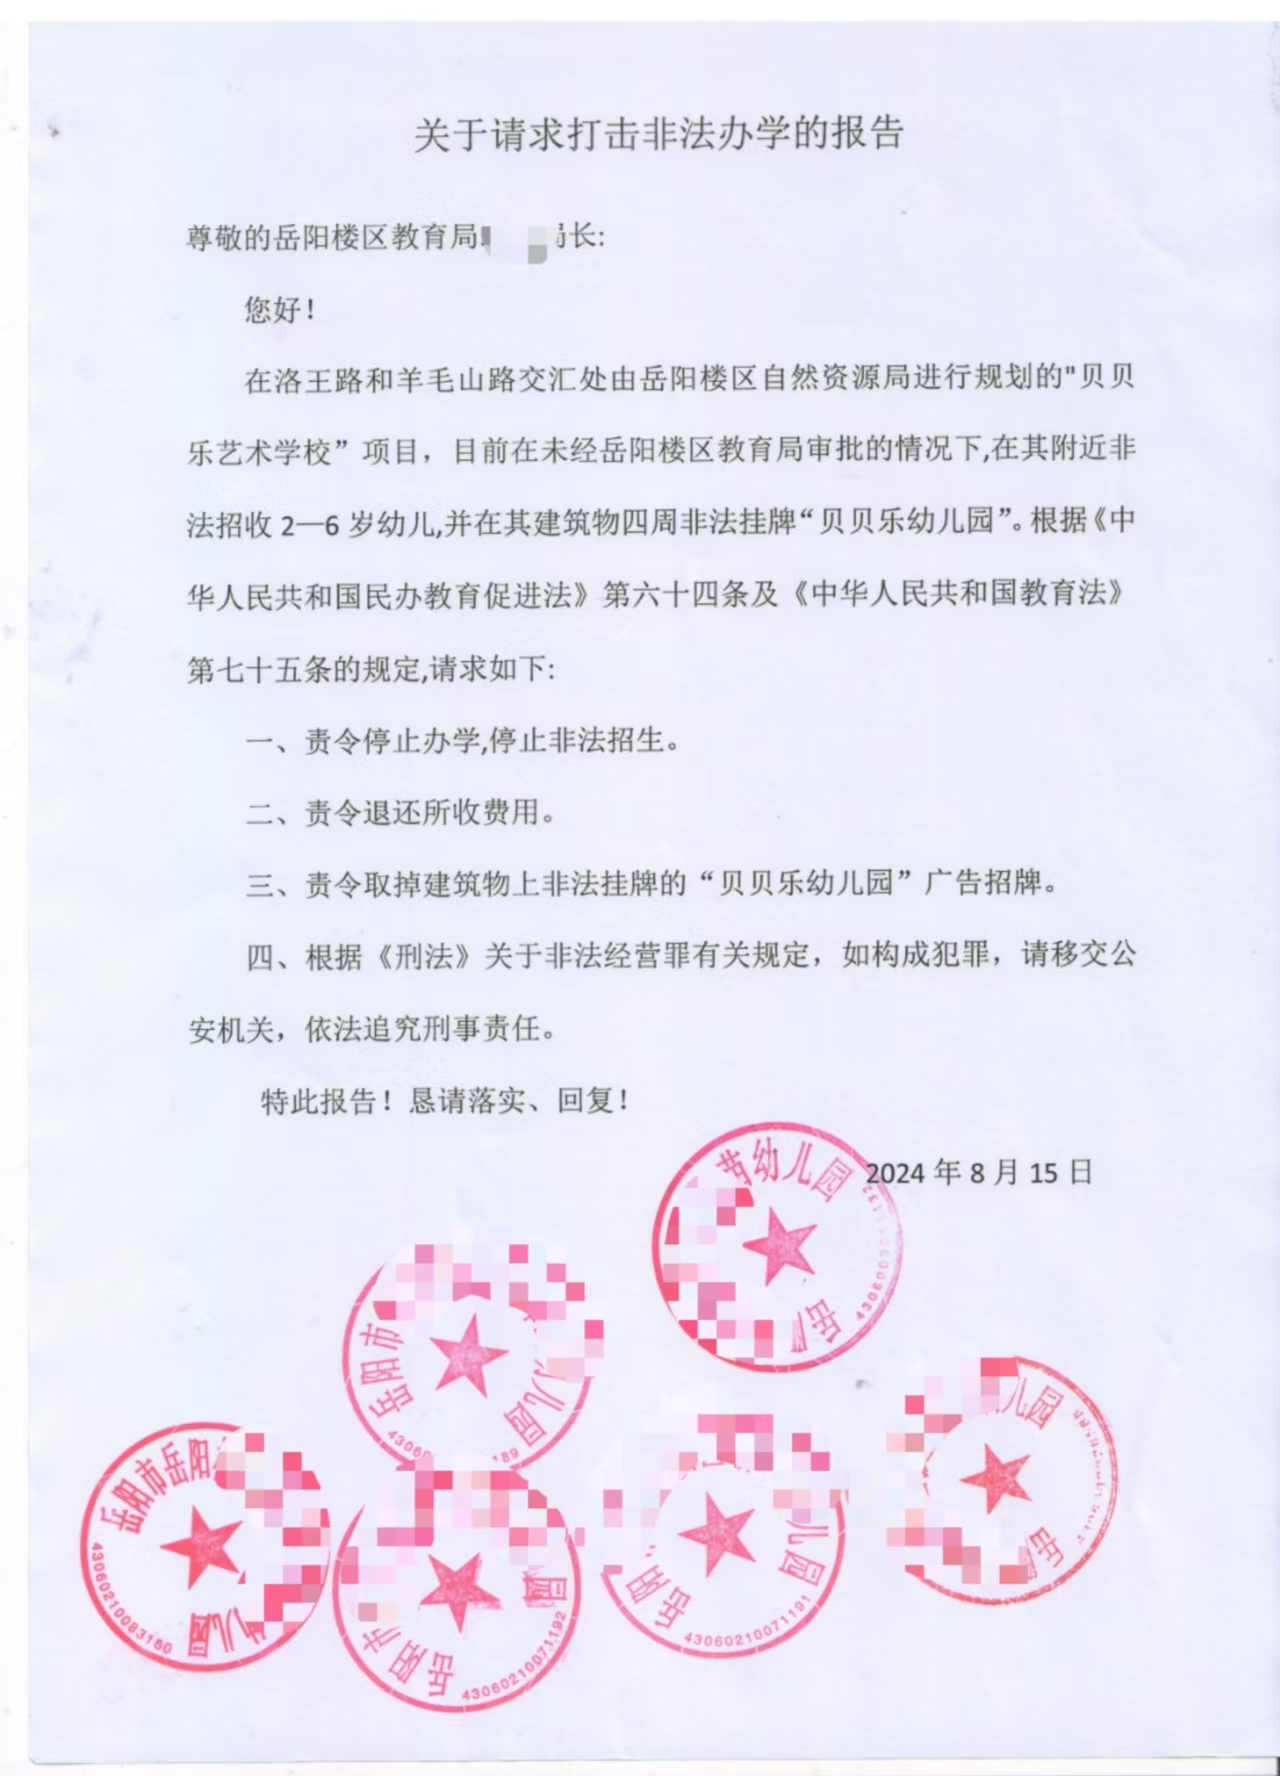 关于请求打击非法办学的报告
尊敬的岳阳楼区教育局 局长:
您好！
在洛王路和羊毛山路交汇处由岳阳楼区自然资源局进行规划的"贝贝
乐艺术学校”项目，目前在未经岳阳楼区教育局审批的情况下,在其附近非
法招收 2—6 岁幼儿,并在其建筑物四周非法挂牌“贝贝乐幼儿园”。根据《中
华人民共和国民办教育促进法》第六十四条及《中华人民共和国教育法》
第七十五条的规定,请求如下:
一、责令停止办学,停止非法招生。
二、责令退还所收费用。
三、责令取掉建筑物上非法挂牌的“贝贝乐幼儿园”广告招牌。
四、根据《刑法》关于非法经营罪有关规定，如构成犯罪，请移交公
安机关，依法追究刑事责任。
特此报告！恳请落实、回复！
2024 年 8 月 15 日
岳 幼儿园
岳阳市 儿园
岳 儿园
岳阳市岳阳 幼儿园
43060210083160
岳阳市 园
43060210071192
岳阳 儿园
43060210071191